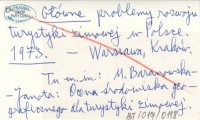 Główne problemy rozwoju
turystyki zimowej w Polsce.
1973. – Warszawa, Kraków.
Tu m.in.: M. Baranowska-
-Janota: Ocena środowiska geo-
graficznego dla turystyki zimowej.
BT/019/018